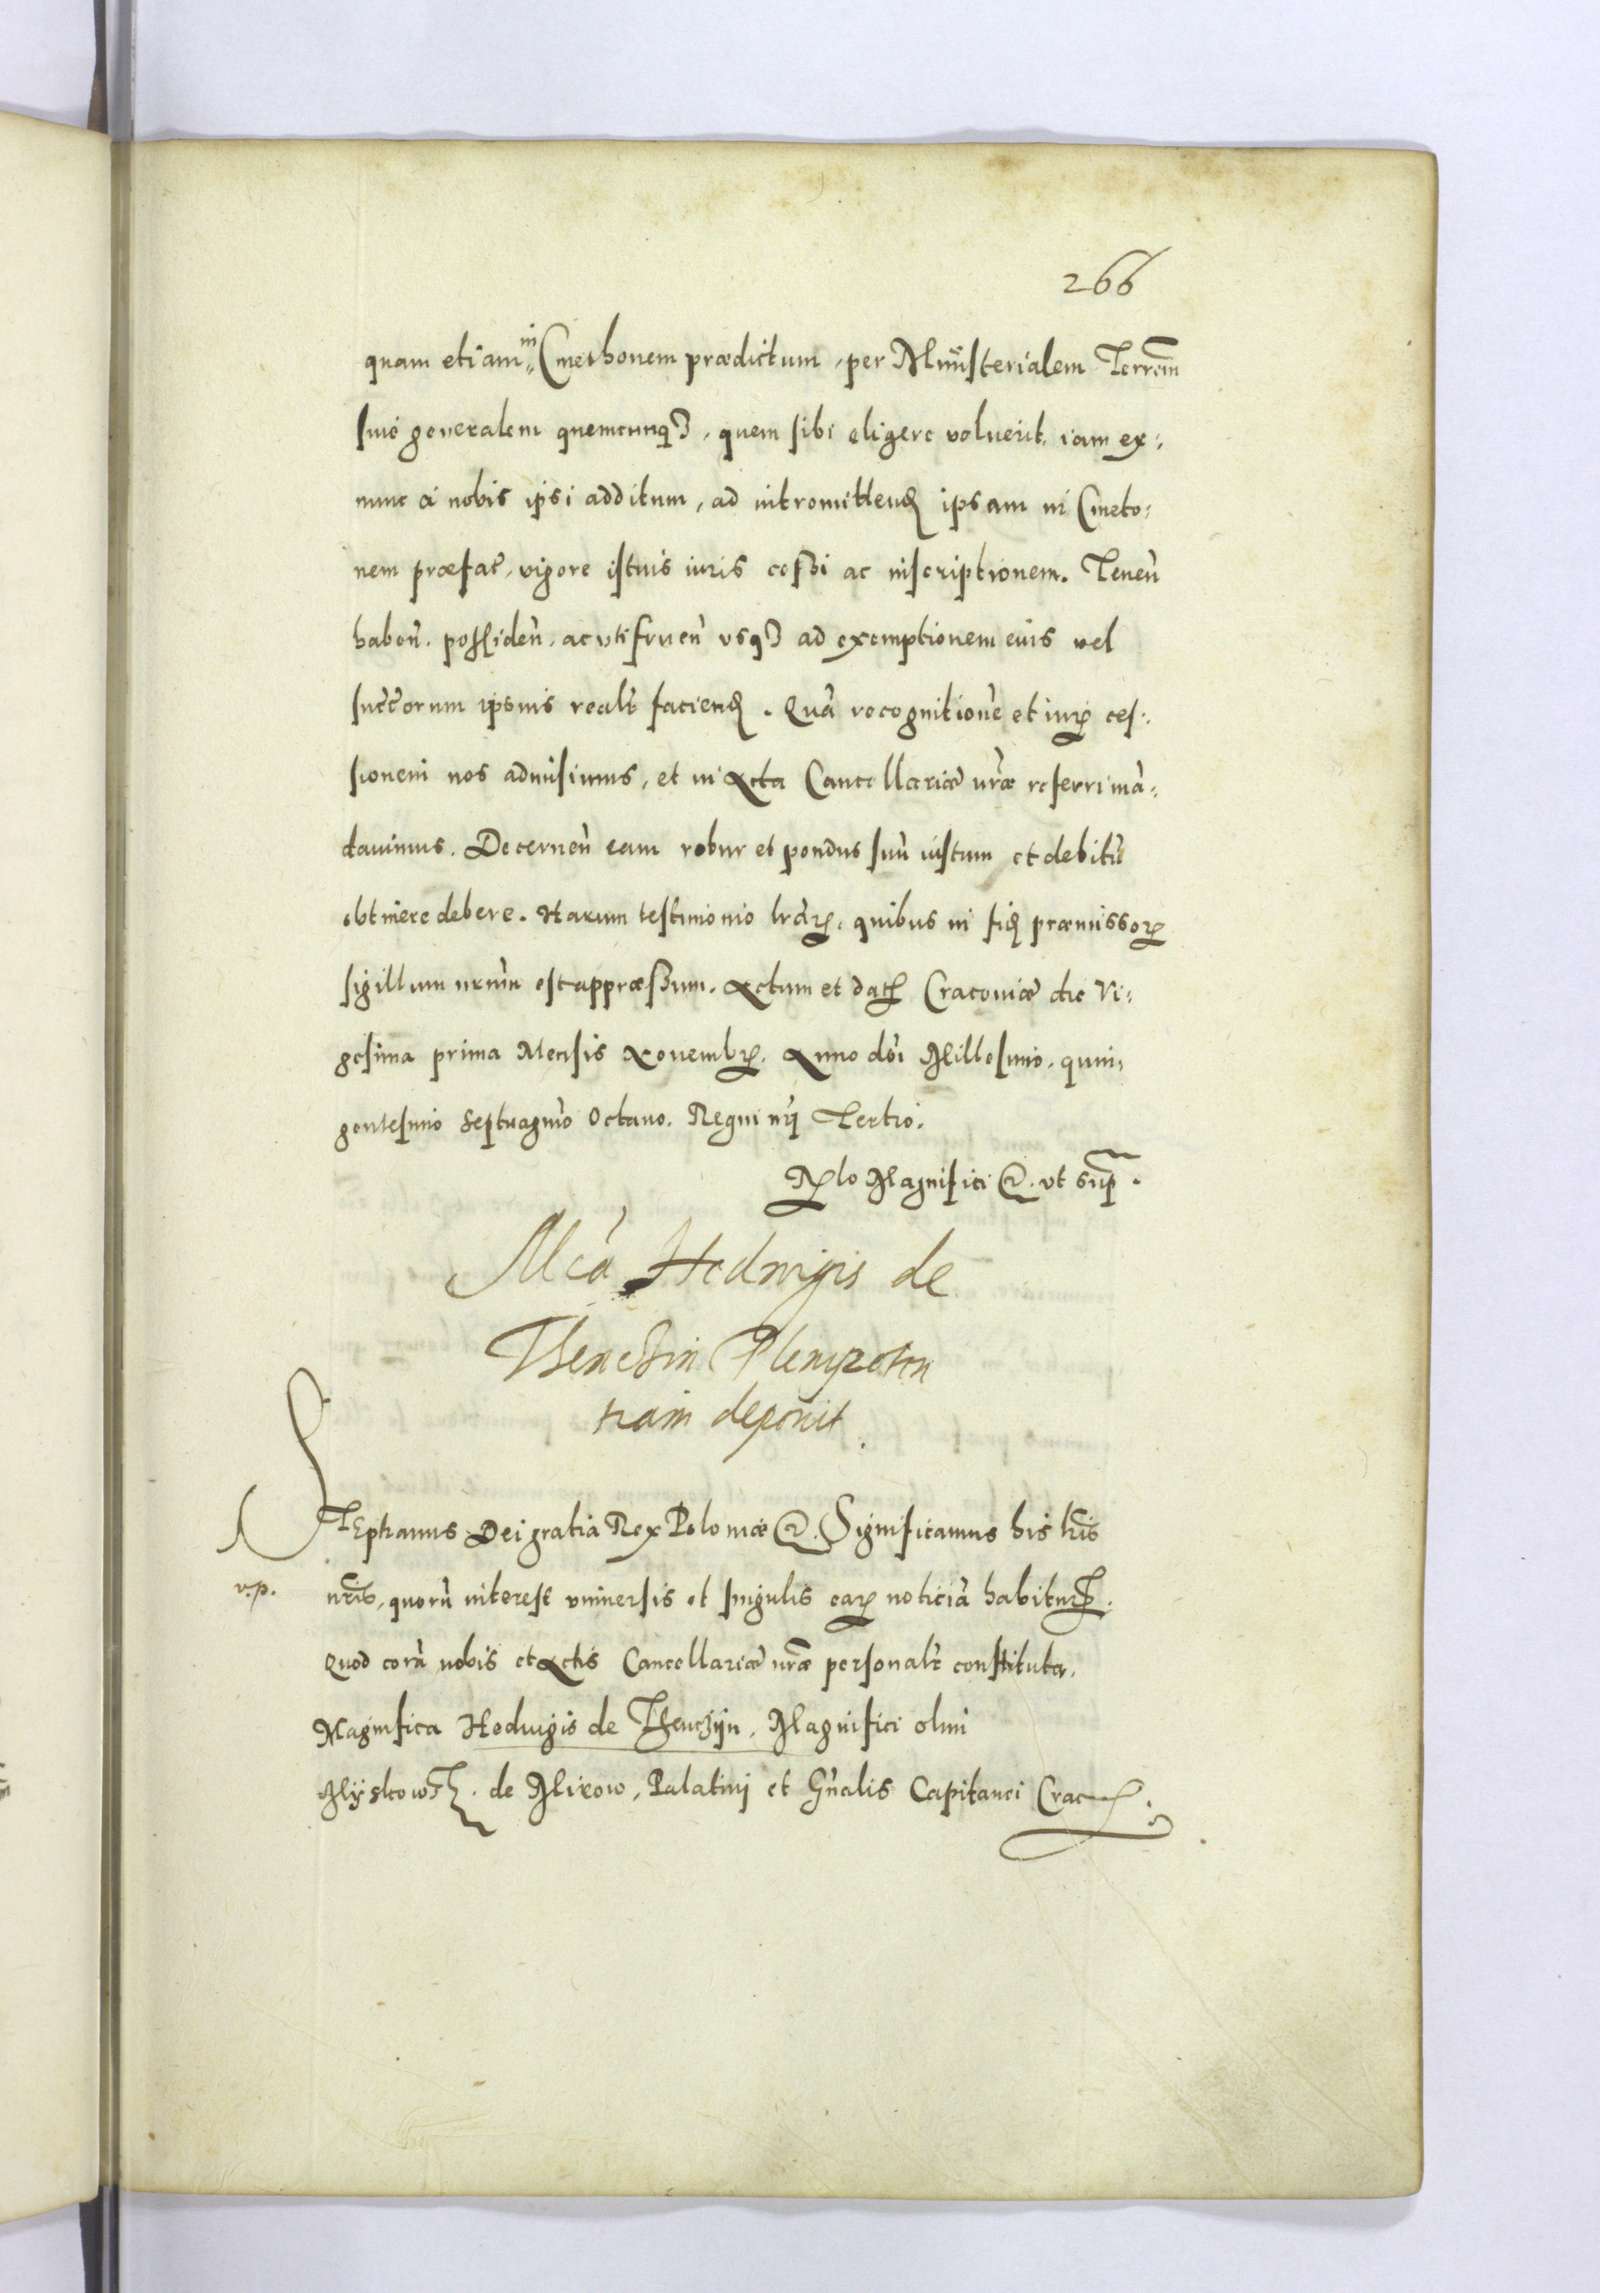 266
quam etiam in Cmethonem prædictum, per Ministerialem Terrem̃
siue generalem quemcunq3, quem sibi eligere voluerit, iam ex:
nunc a nobis ipsi additum, ad intromittend ipsam in Cmeto:
nem præfat, vigore istuis iuris cessi ac inscriptionem. Tenen̄
haben̄. possiden̄. ac vtifruen̄ vsq3 ad exemptionem eius vel
succ̄orum ipsuis realr̄ faciend. Quā recognitionē et iuꝝ ces:
sionem nos admisimus, et in Acta Cancellariæ nr̄æ referri mā:
dauimus. Decernen̄ eam robur et pondus suū iustum et debitū
obtinere debere. Harum testimonio lr̄aꝝ. quibus in fid præmissoꝝ
sigillum nr̄um est appræssum. Actum et dat Cracouiæ die Vi:
gesima prima Mensis Nouembꝝ. Anno dōi Millesimo, quin:
gentesimo Septuagmo Octauo. Regni nr̄i Tertio.
Rlo Magnifici &. vt sup.
Mcā Hedwigis de
Thenczin Plenipoten
tiam deponit.
STEphanus Dei gratia Rex Poloniæ &. Significamus his lr̄is
v.p.
nr̄is, quorū interest vniuersis et singulis eaꝝ noticiā habitur.
Quod corā nobis et Actis Cancellariæ nr̄æ personalr̄ constituta,
Magnifica Heduigis de Thenczijn, Magnifici olim
Mijskowsk. de Mirow, Palatini et Gn̄alis Capitanei Crac.